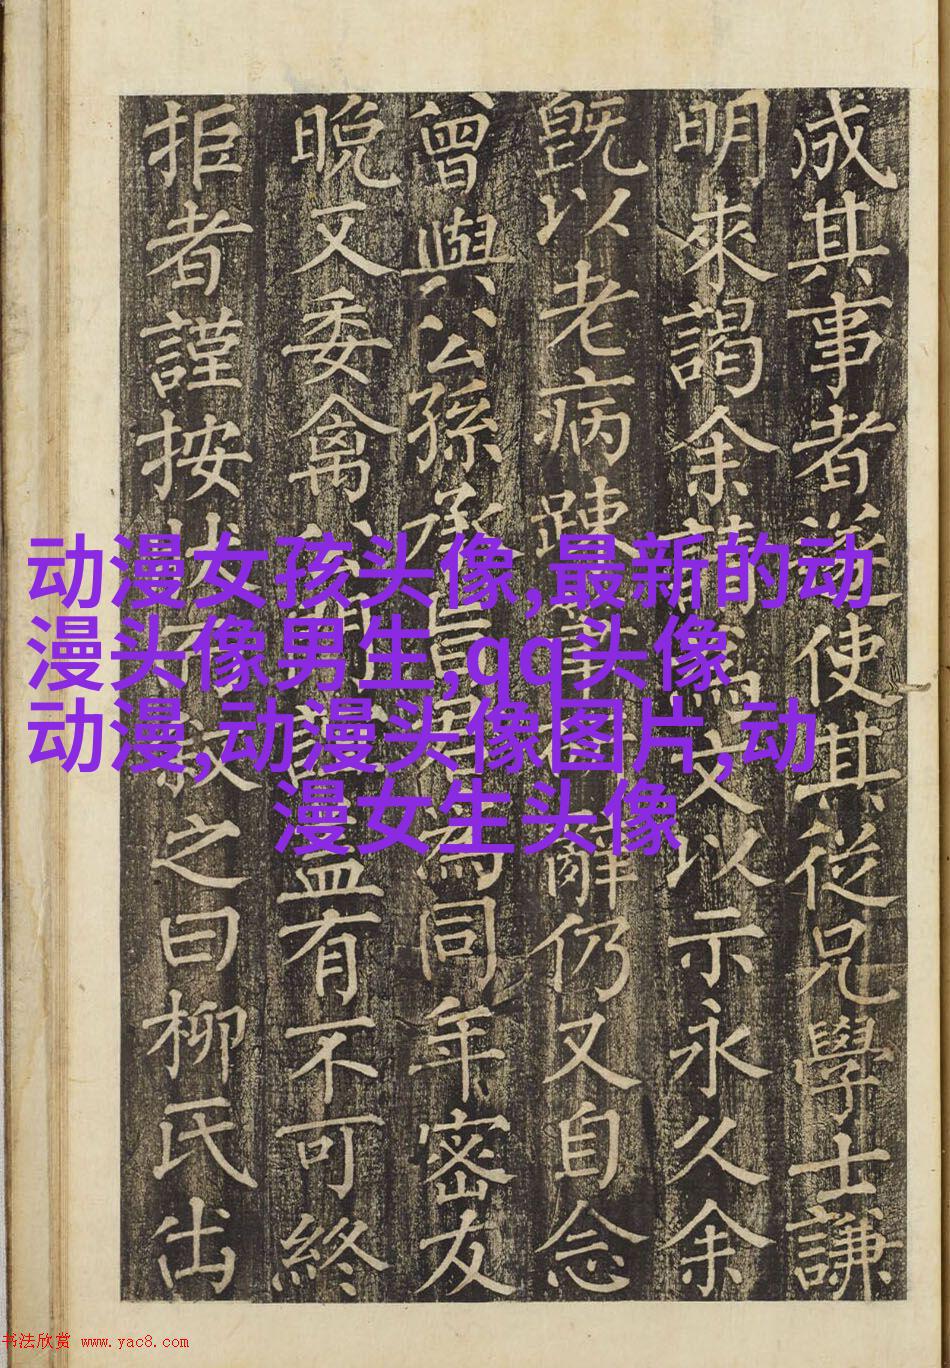 成其事者使其從兄學士謙
明來謁余請為文以示永久余
既以老病踈事辭仍又自念
曾與公孫承旨為同年密友
晚又委禽有不可終
拒者謹按狀而敘之曰柳氏出
动漫女孩头像,最新的动
漫头像男生,qq头像
动漫,动漫头像图片,动
漫女生头像
书法欣赏 www.yac8.com